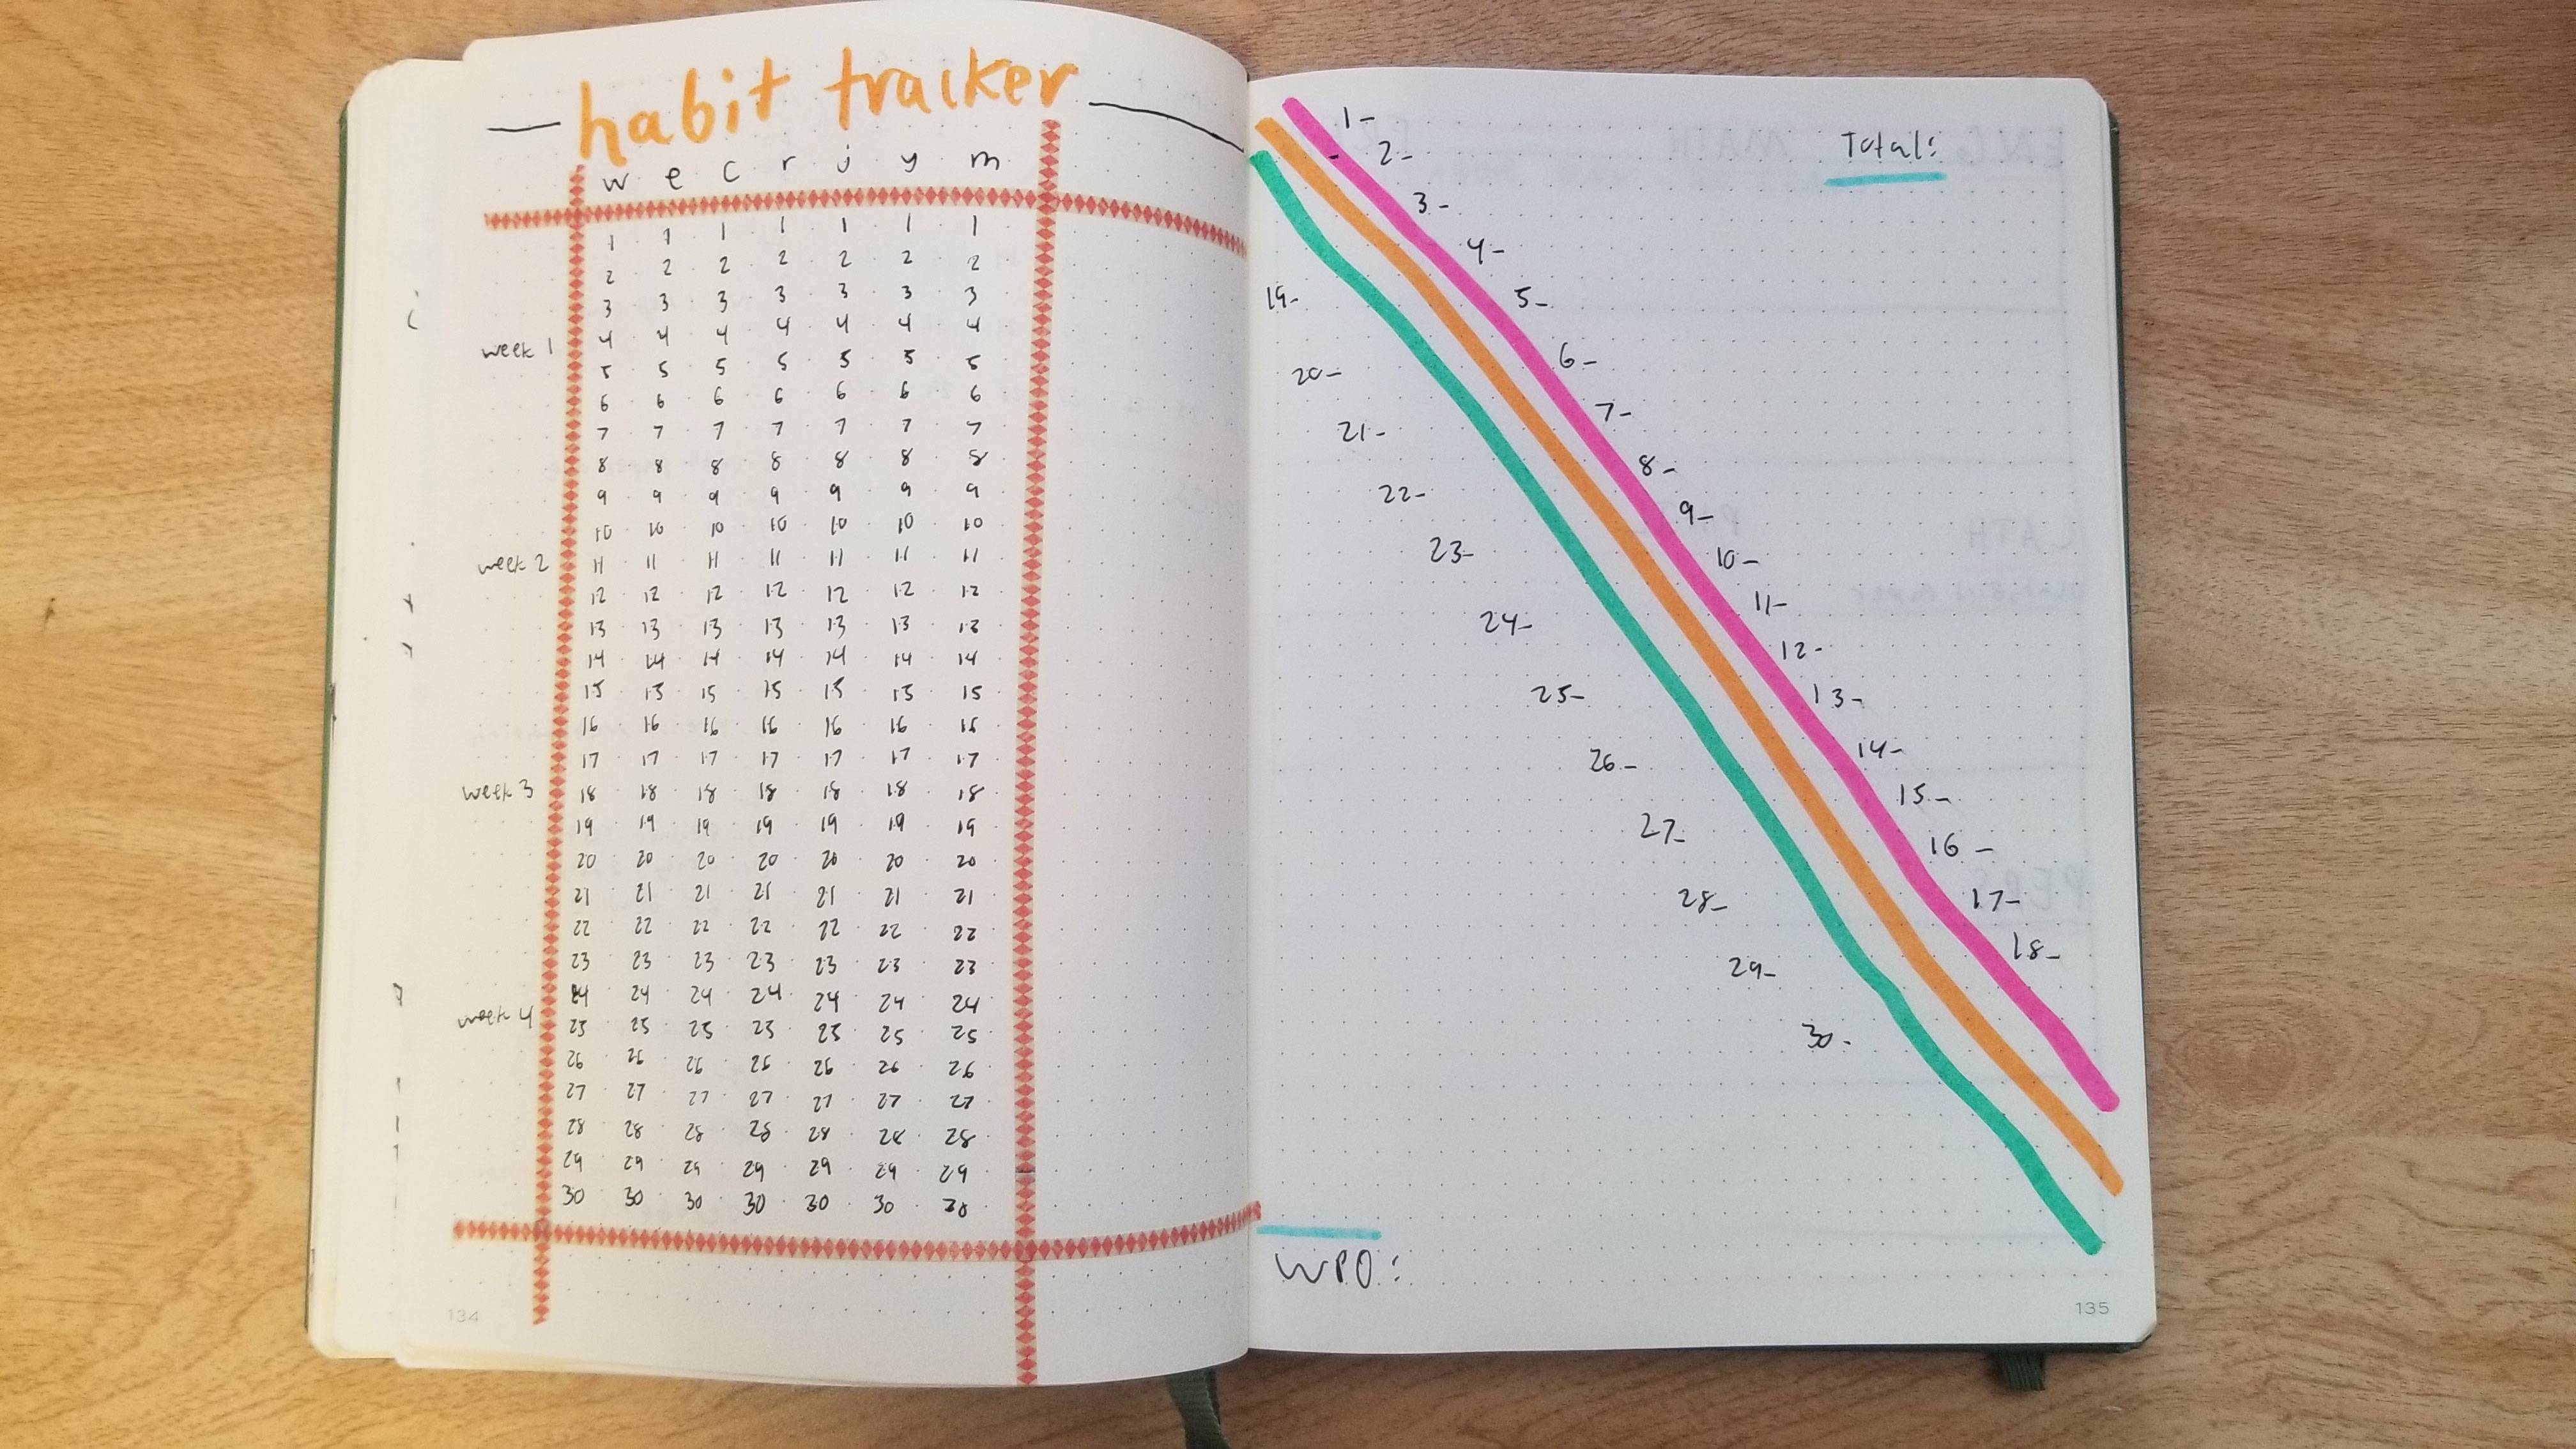 habit tracker
w e c r j y m
1 1 1 1 1 1 1
2 2 2 2 2 2 2
3 3 3 3 3 3 3
week 1 4 4 4 4 4 4 4
5 5 5 5 5 5 5
6 6 6 6 6 6 6
7 7 7 7 7 7 7
8 8 8 8 8 8 8
9 9 9 9 9 9 9
10 10 10 10 10 10 10
week 2 11 11 11 11 11 11 11
12 12 12 12 12 12 12
13 13 13 13 13 13 13
14 14 14 14 14 14 14
15 15 15 15 15 15 15
16 16 16 16 16 16 16
17 17 17 17 17 17 17
week 3 18 18 18 18 18 18 18
19 19 19 19 19 19 19
20 20 20 20 20 20 20
21 21 21 21 21 21 21
22 22 22 22 22 22 22
23 23 23 23 23 23 23
24 24 24 24 24 24 24
week 4 25 25 25 25 25 25 25
26 26 26 26 26 26 26
27 27 27 27 27 27 27
28 28 28 28 28 28 28
29 29 29 29 29 29 29
30 30 30 30 30 30 30
134
Total:
1-
2-
3-
4-
5-
6-
7-
8-
9-
10-
11-
12-
13-
14-
15-
16-
17-
18-
19-
20-
21-
22-
23-
24-
25-
26-
27-
28-
29-
30-
WPO:
135